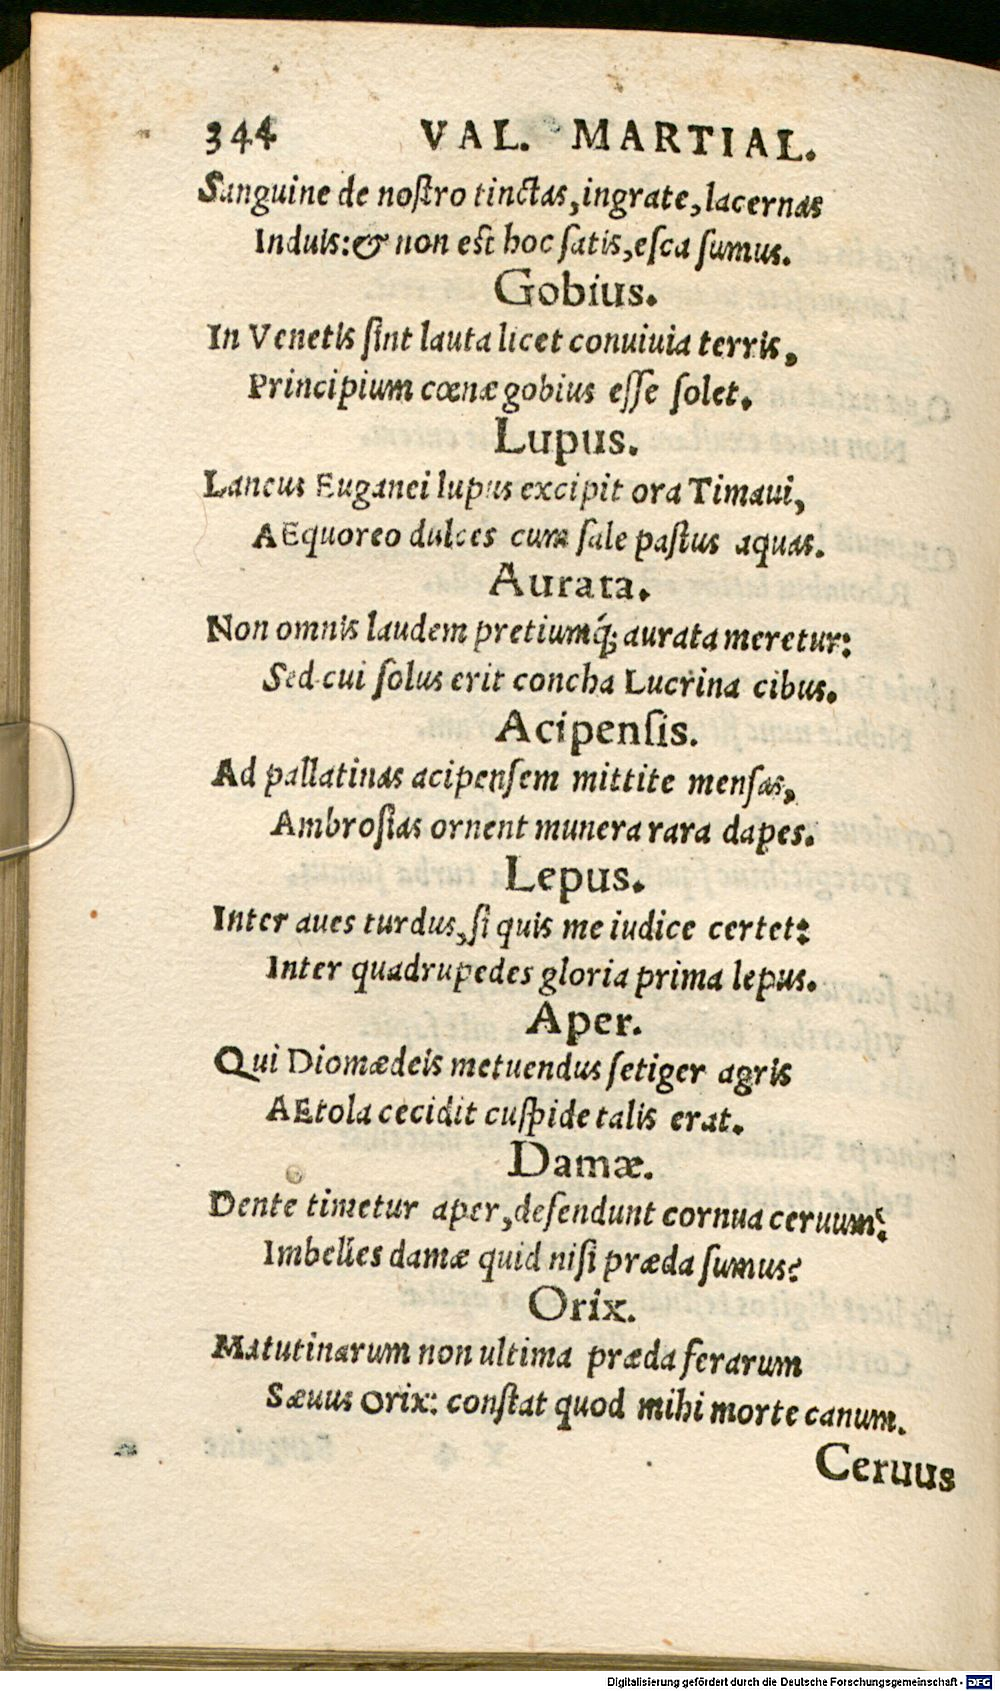 344 VAL. MARTIAL.
Sanguine de noſtro tinctas, ingrate, lacernas
Induis: & non eſt hoc ſatis, eſca ſumus.
Gobius.
In Venetis ſint lauta licet conuiuia terris,
Principium cœnæ gobius eſſe ſolet.
Lupus.
Laneus Euganei lupus excipit ora Timaui,
AEquoreo dulces cum ſale paſtus aquas.
Aurata.
Non omnis laudem pretiumq́; aurata meretur:
Sed cui ſolus erit concha Lucrina cibus.
Acipenſis.
Ad pallatinas acipenſem mittite menſas,
Ambroſias ornent munera rara dapes.
Lepus.
Inter aues turdus, ſi quis me iudice certet:
Inter quadrupedes gloria prima lepus.
Aper.
Qui Diomædeis metuendus ſetiger agris
AEtola cecidit cuſpide talis erat.
Damæ.
Dente timetur aper, defendunt cornua ceruum:
Imbelles damæ quid niſi præda ſumus?
Orix.
Matutinarum non ultima præda ferarum
Sæuus orix: conſtat quod mihi morte canum.
Ceruus
Digitalisierung gefördert durch die Deutsche Forschungsgemeinschaft - DFG